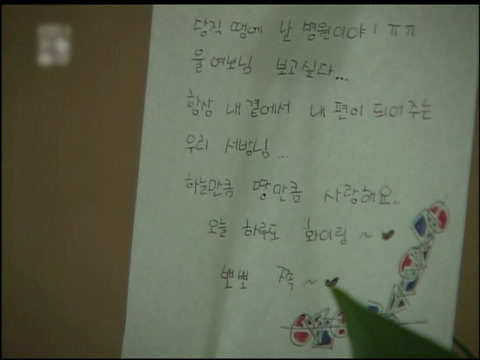 당직 땜에 난 병원이야! ㅠㅠ
울 여보님 보고싶다...
항상 내 곁에서 내 편이 되어주는
우리 서방님...
하늘만큼 땅만큼 사랑해요..
오늘 하루도 화이팅 ~ ♥
뽀뽀 쪽 ~ ♥